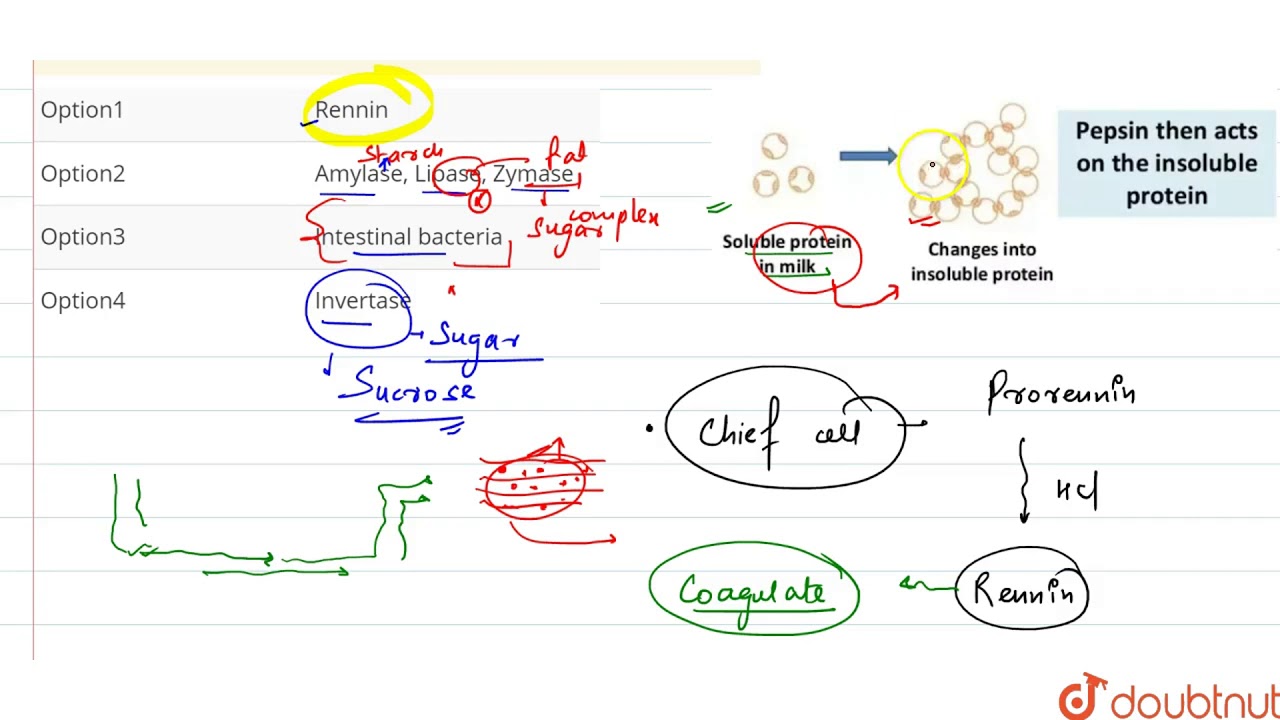 Option1 Rennin
starch
fat
Option2 Amylase, Lipase, Zymase
complex
sugar
Option3 Intestinal bacteria
Option4 Invertase
Sugar
Sucrose
Soluble protein
in milk
Changes into
insoluble protein
Pepsin then acts
on the insoluble
protein
Chief cell
Prorennin
HCl
Rennin
Coagulate
doubtnut